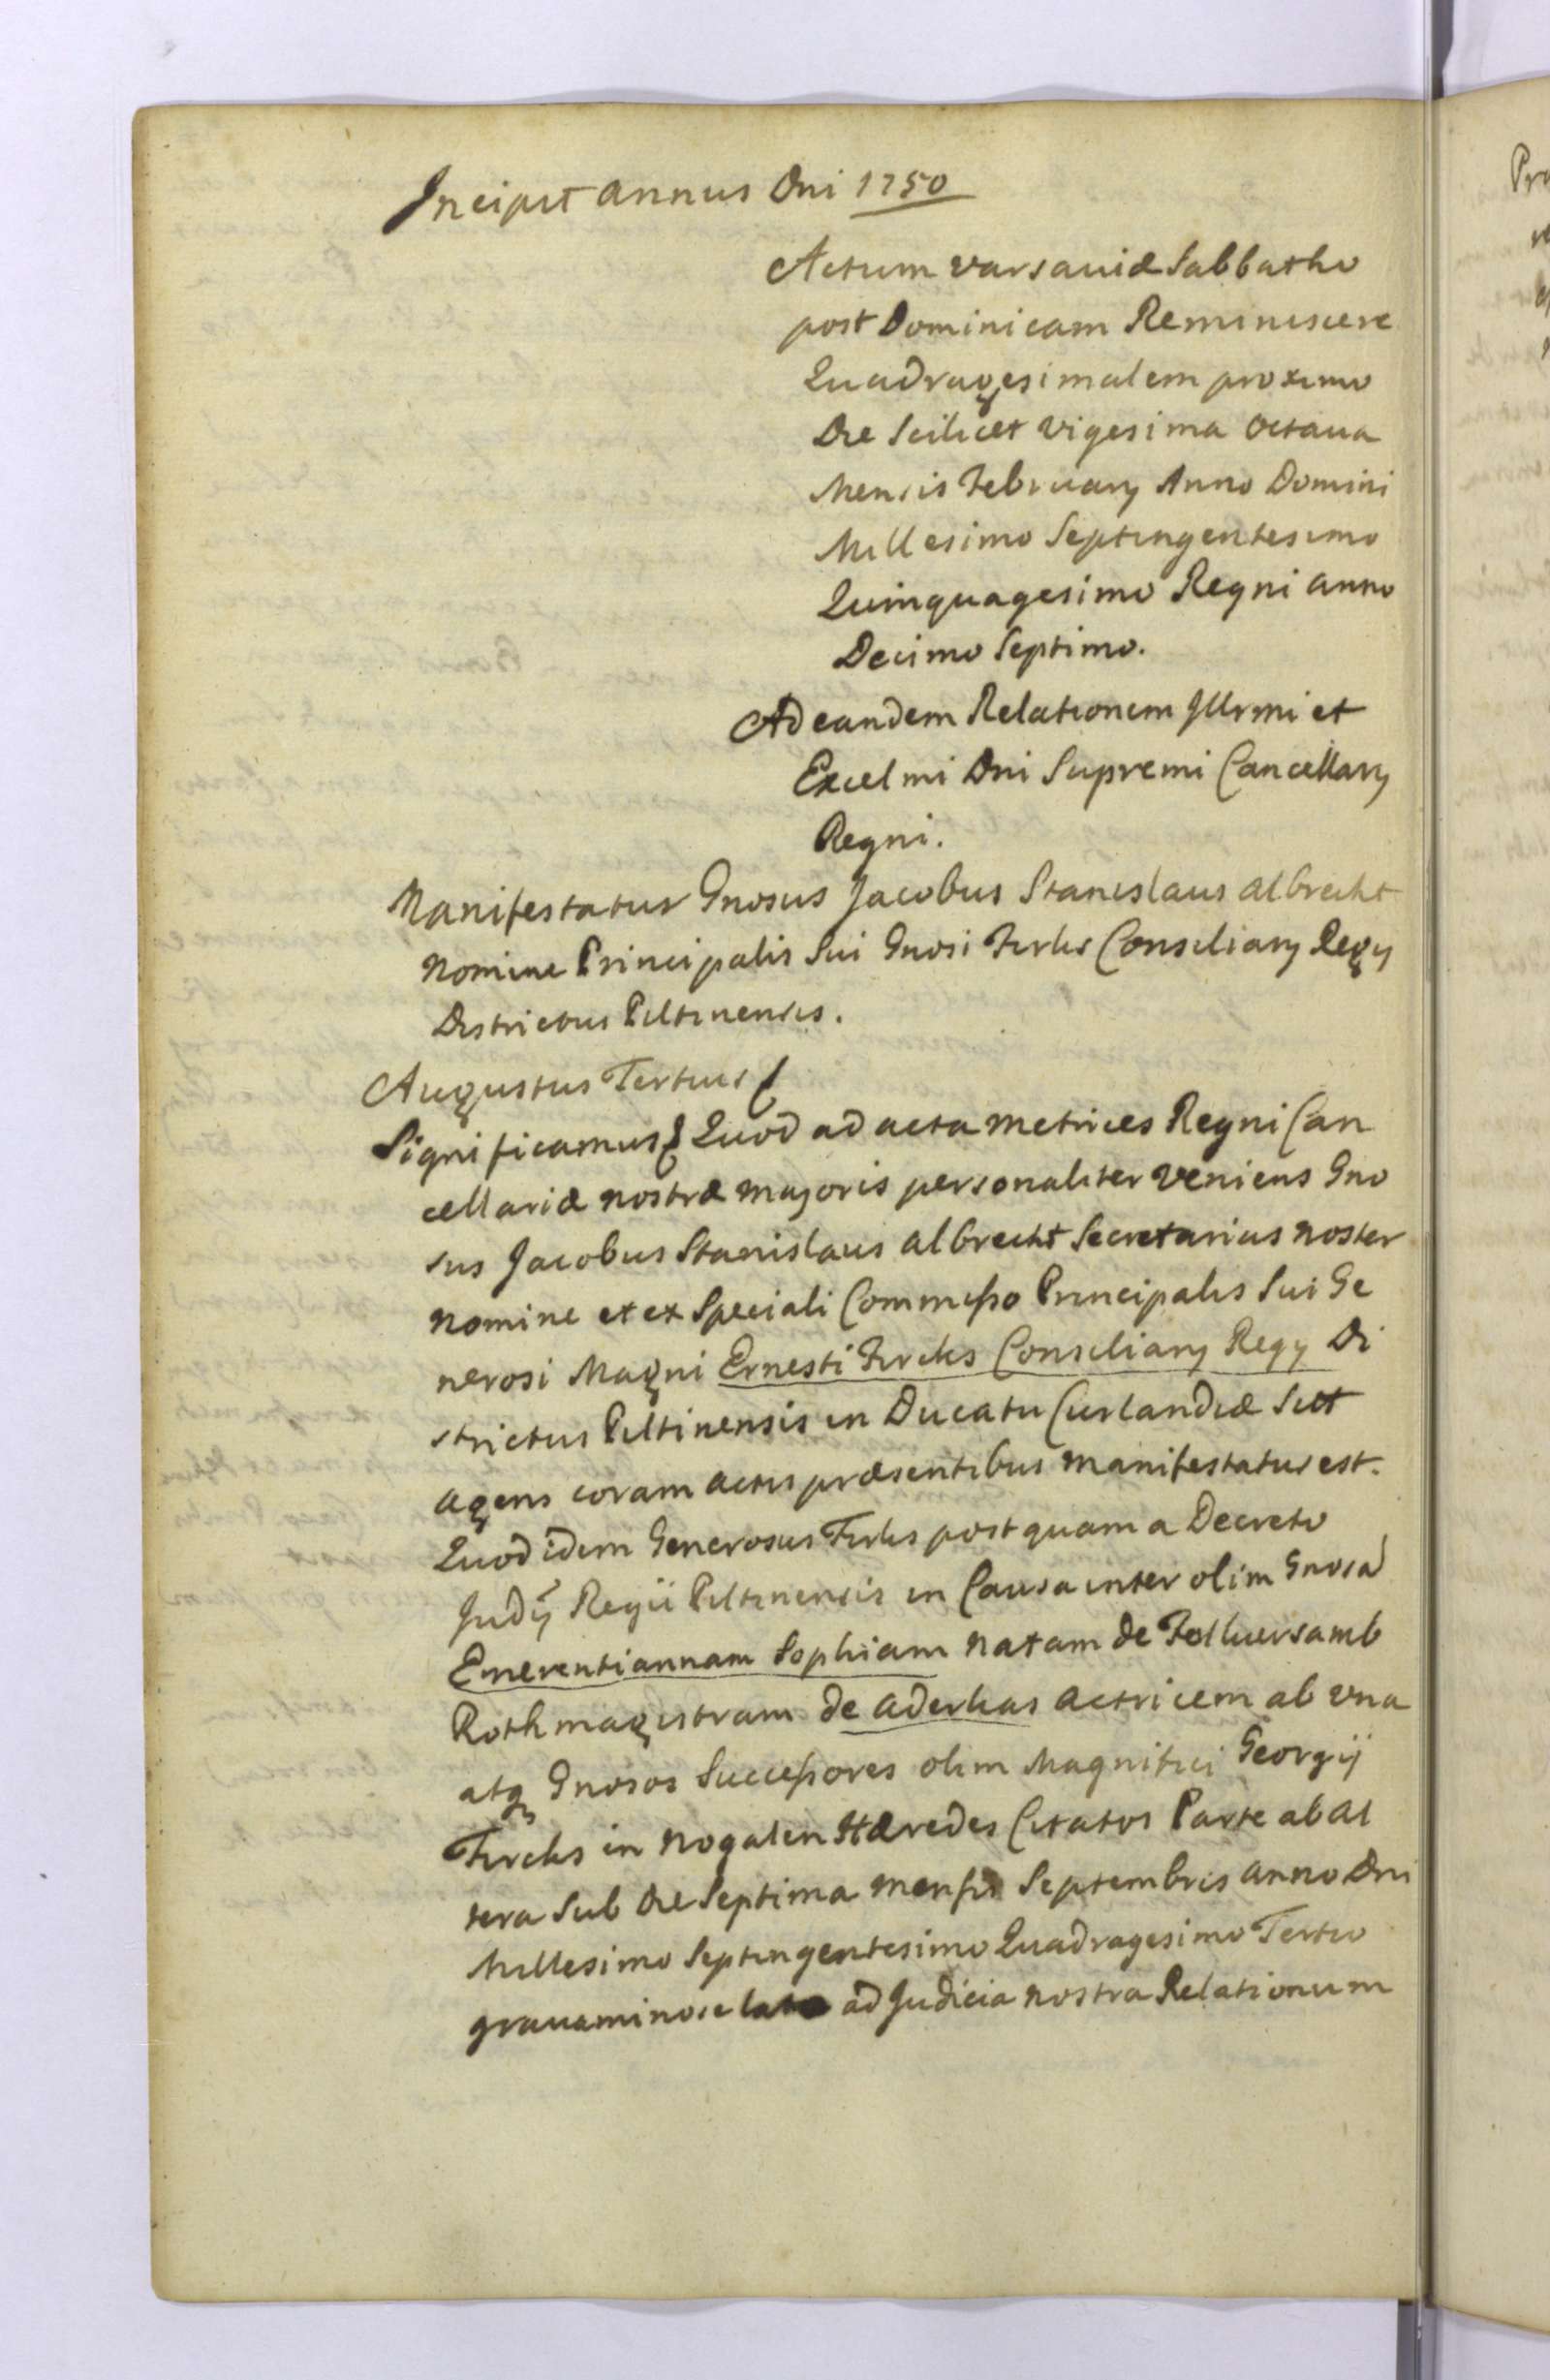 Incipit annus Dni 1750
Actum Varsaviæ Sabbatho
post Dominicam Reminiscere
Quadragesimalem proximo
Die Scilicet Vigesima Octaua
Mensis February Anno Domini
Millesimo Septingentesimo
Quinquagesimo Regni anno
Decimo Septimo.
Ad eandem Relationem Jllrmi et
Excelmi Dni Supremi Cancellary
Regni.
Manifestatur Gnosus Jacobus Stanislaus Albrecht
Nomine Principalis Sui Gnosi Fircks Consiliary Regy
Districtus Piltinensis.
Augustus Tertius
Significamus Quod ad acta metrices Regni Can
cellariæ nostræ majoris personaliter veniens Gno
sus Jacobus Stanislaus Albrecht Secretarius noster
nomine et ex Speciali Commisso Principalis Sui Ge
nerosi Magni Ernesti Fircks Consiliary Regy Di
strictus Piltinensis in Ducatu Curlandiæ Siti
agens coram actis præsentibus manifestatus est.
Quod idem Generosus Fircks postquam a Decreto
Judy Regii Piltinensis in Causa inter olim Gnosa
Emerentiannam Sophiam natam de
Rothmagistram de Aderkas actricem ab vna
atq Gnosos Successores olim Magnifici Georgij
Fircks in Nogalen Hæredes Citatos Parte ab al
tera Sub Die Septima mensis Septembris anno Dni
Millesimo Septingentesimo Quadragesimo Tertio
grauaminose lato ad Judicia nostra Relationum